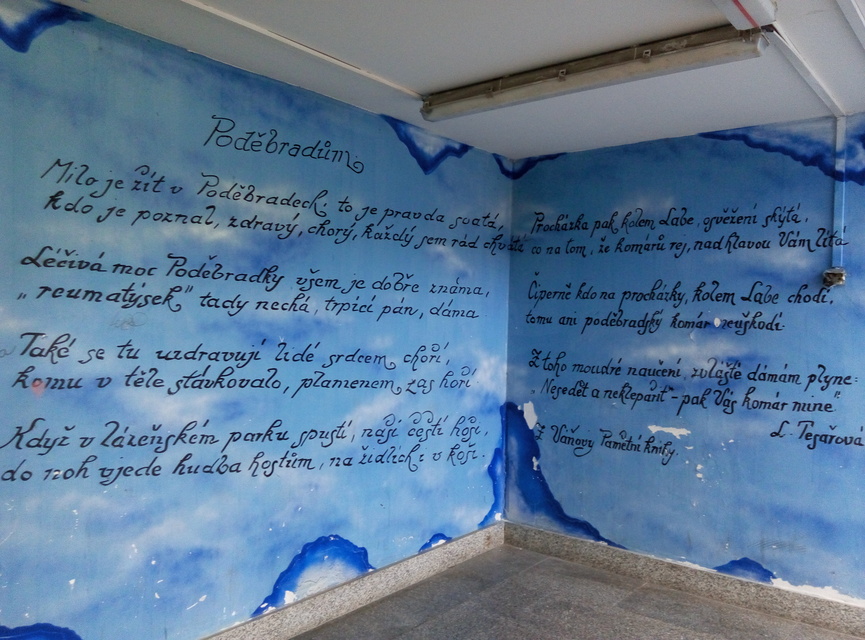 Poděbradům
Milo je žít v Poděbradech, to je pravda svatá,
kdo je poznal, zdravý, chorý, každý sem rád chvátá
Léčivá moc Poděbradky všem je dobře známa,
„reumatýsek" tady nechá, trpící pán, dáma
Také se tu uzdravují lidé srdcem choří,
komu v těle stávkovalo, plamenem zas hoří.
Když v lázeňském parku spustí, naši čeští hoši,
do noh vjede hudba hostům, na židlích i v koši.
Procházka pak kolem Labe, osvěžení skýtá,
co na tom, že komárů rej, nad hlavou Vám lítá
Čiperně kdo na procházky, kolem Labe chodí,
tomu ani poděbradský komár neuškodí.
Z toho moudré naučení, zvláště dámám plyne:
„Nesedět a neklepařit" – pak Vás komár mine"
L. Tesařová
Z Váňovy Pamětní knihy.